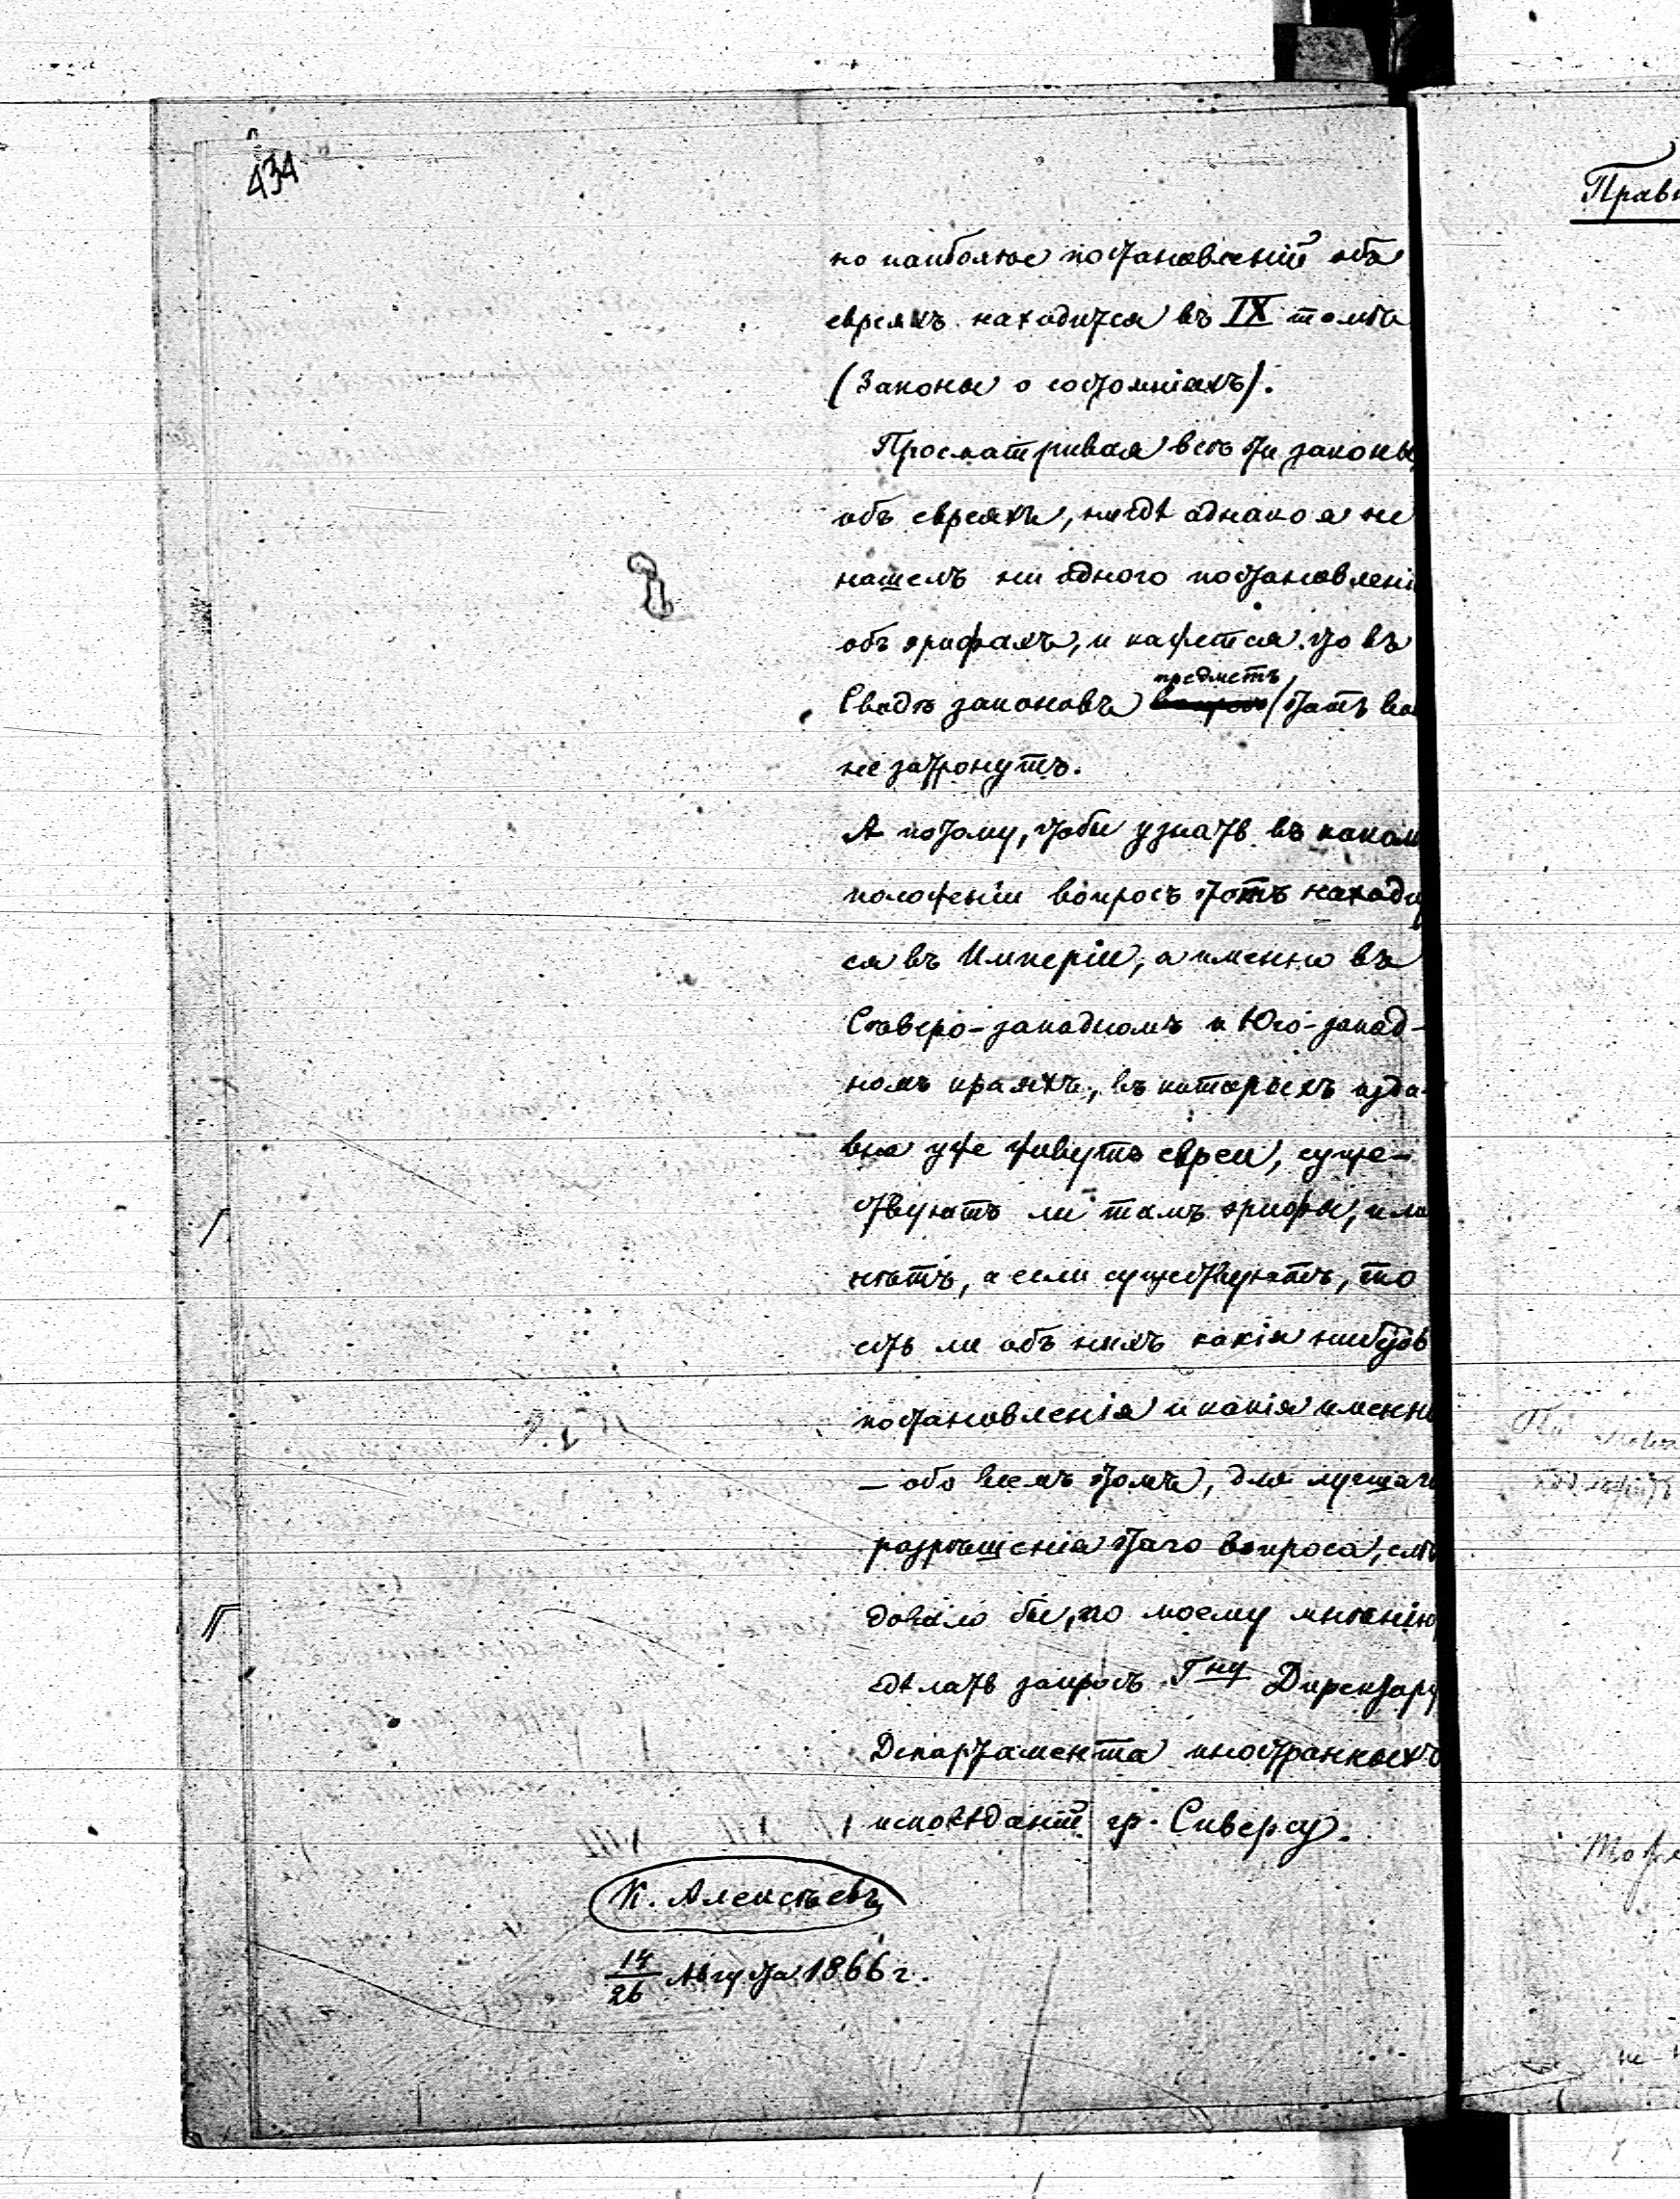 434
но наиболѣе постановленій объ
евреяхъ находится въ IX томѣ
(Законы о состояніяхъ).
Просматривая всѣ эти законы
объ евреяхъ, нигдѣ однако я не
нашелъ ни одного постановлені
объ эрифахъ, и кажется что въ
предметъ
Сводѣ законовъ вопросъ этотъ во
не затронутъ.
А потому, чтобы узнать въ каком
положеніи вопросъ этотъ находит
ся въ Имперіи, а именно въ
Сѣверо-западномъ и Юго-запад-
номъ краяхъ, въ которыхъ изда-
вна уже живутъ евреи, суще-
ствуютъ ли тамъ эрифы, или
нѣтъ, а если существуютъ, то
есть ли объ нихъ какія нибудь
постановленія и какія именно
— обо всемъ этомъ, для лучшаго
разрѣшенія этаго вопроса, слѣ
довало бы, по моему мнѣнію,
сдѣлать запросъ Гну Директору
Департамента иностранныхъ
исповѣданій гр. Сиверсу.
К. Алексѣевъ
14/26 Августа 1866 г.
Прав